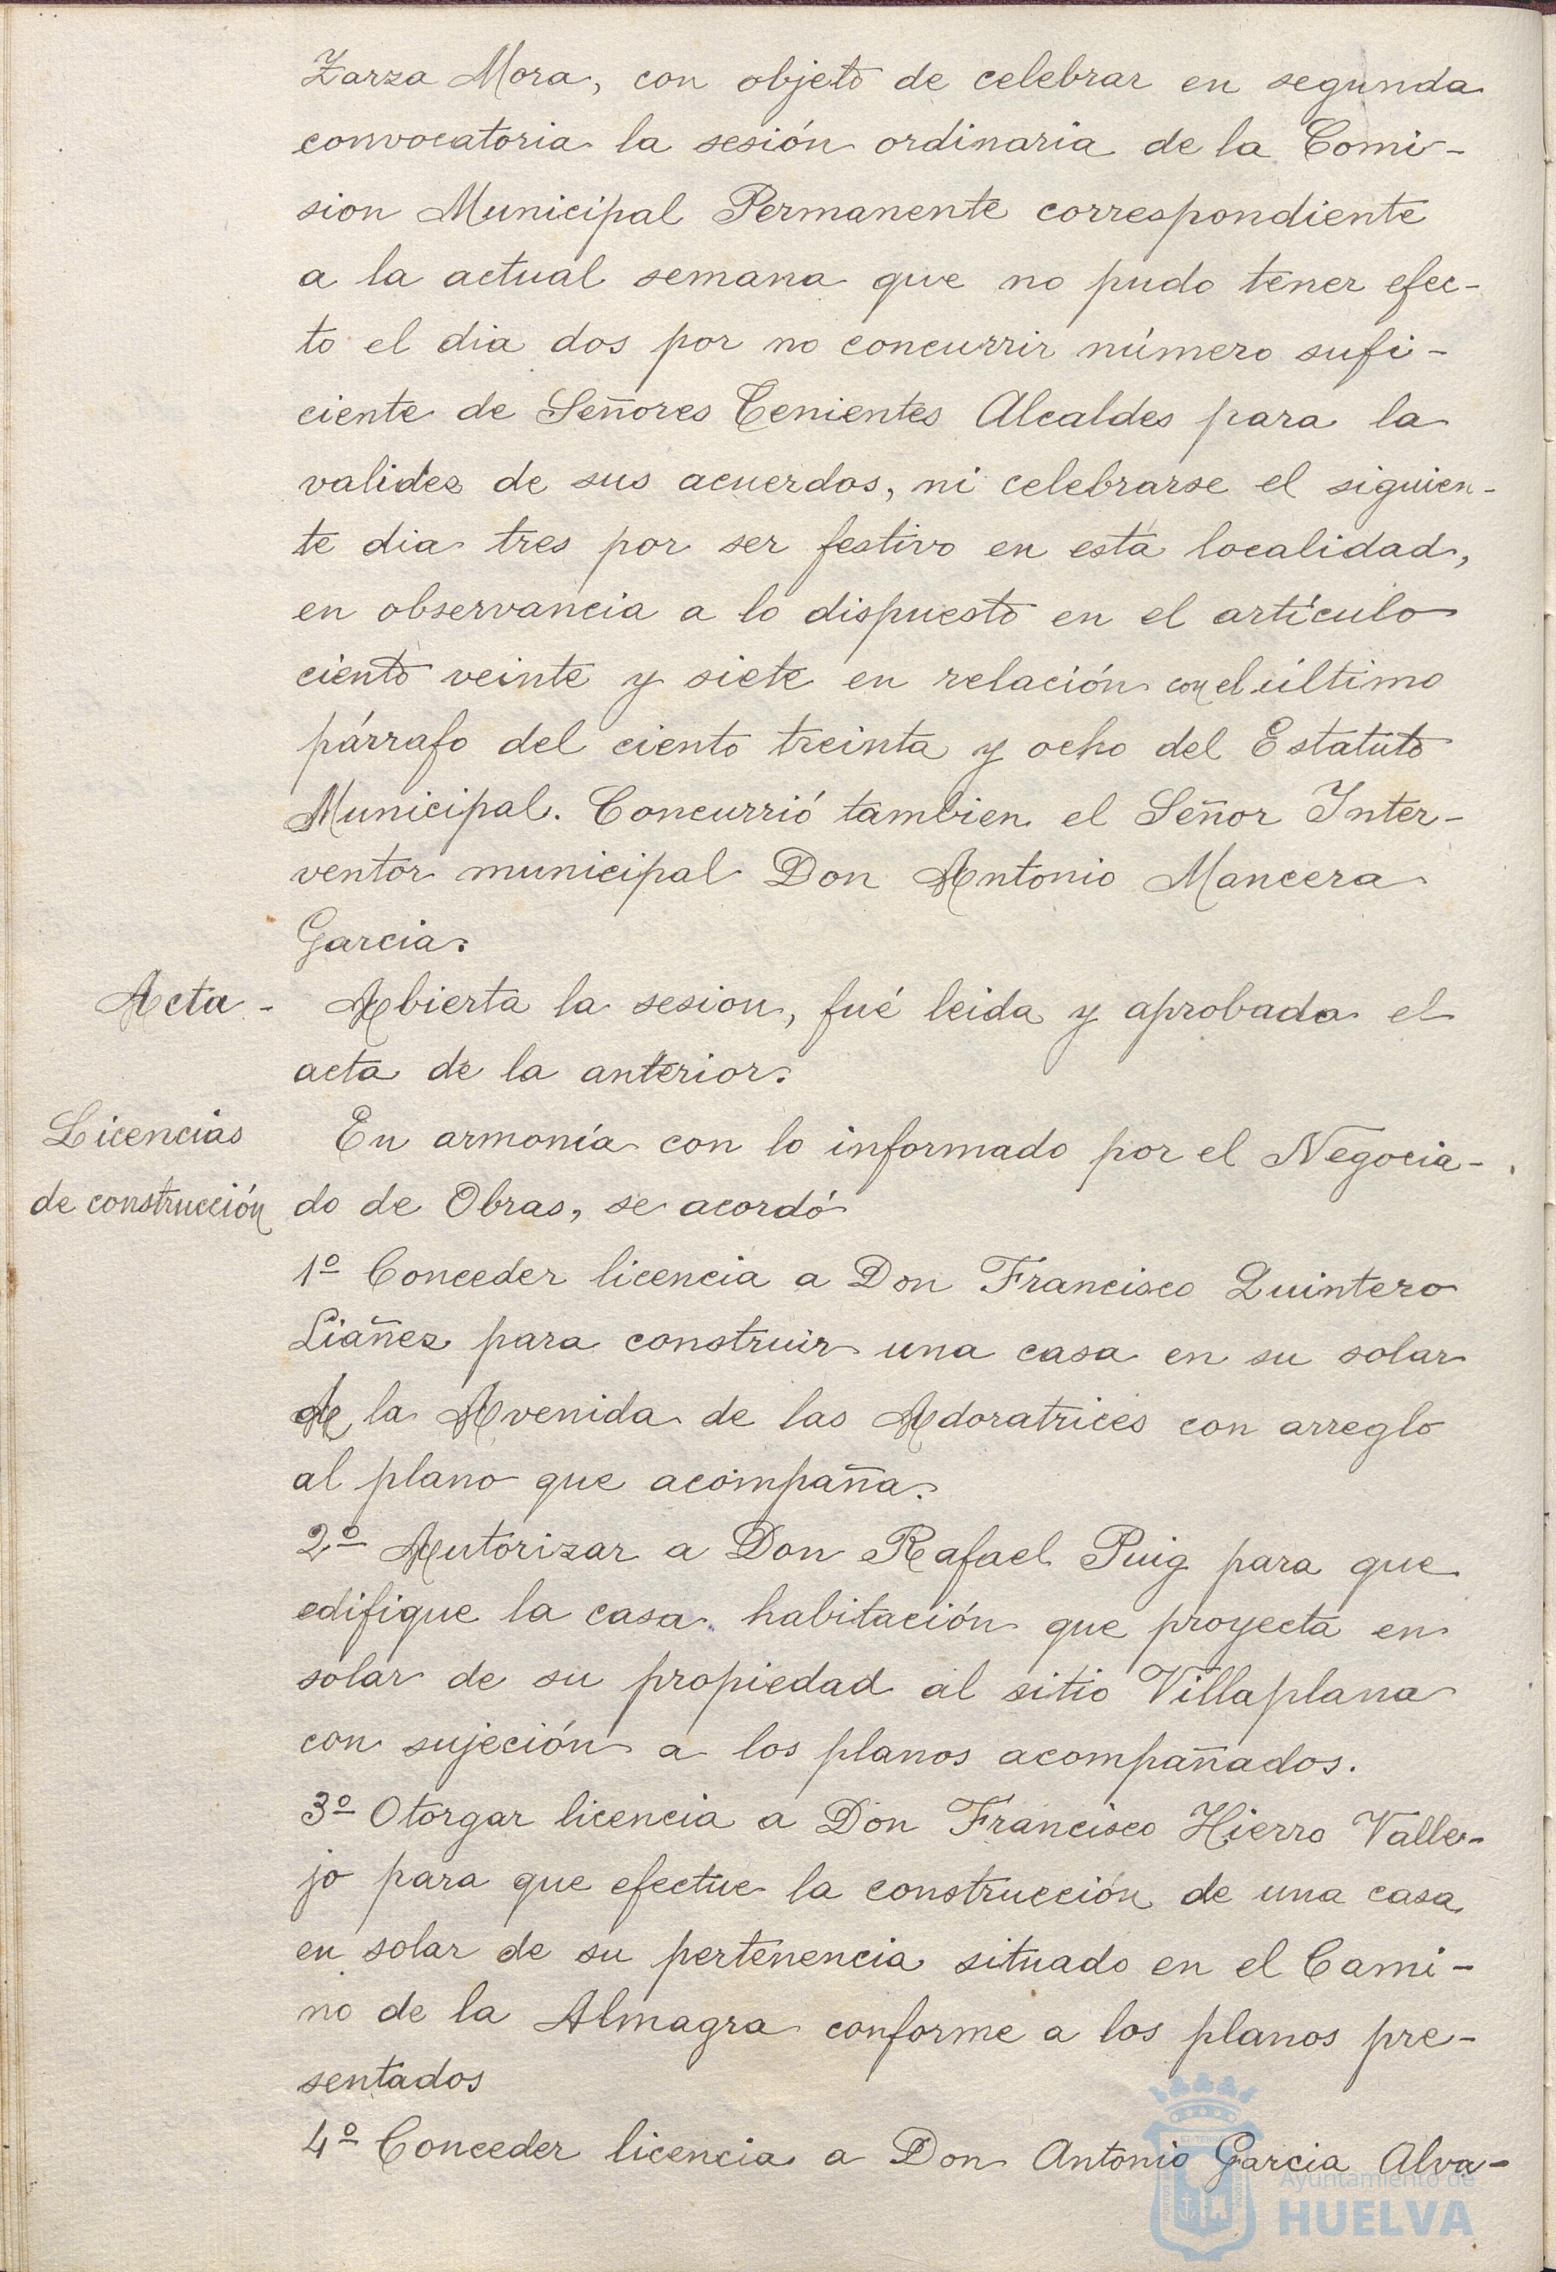 Zarza Mora, con objeto de celebrar en segunda
convocatoria la sesión ordinaria de la Comi-
sion Municipal Permanente correspondiente
a la actual semana que no pudo tener efec-
to el dia dos por no concurrir número sufi-
ciente de Señores Tenientes Alcaldes para la
validez de sus acuerdos, ni celebrarse el siguien-
te dia tres por ser festivo en esta localidad,
en observancia a lo dispuesto en el artículo
ciento veinte y siete en relación con el último
párrafo del ciento treinta y ocho del Estatuto
Municipal. Concurrió tambien el Señor Inter-
ventor municipal Don Antonio Mancera
Garcia.
Acta - Abierta la sesion, fué leida y aprobada el
acta de la anterior.
Licencias
de construcción
En armonía con lo informado por el Negocia-
do de Obras, se acordó
1º Conceder licencia a Don Francisco Quintero
Liañez para construir una casa en su solar
de la Avenida de las Adoratrices con arreglo
al plano que acompaña.
2º Autorizar a Don Rafael Puig para que
edifique la casa habitación que proyecta en
solar de su propiedad al sitio Villaplana
con sujeción a los planos acompañados.
3º Otorgar licencia a Don Francisco Hierro Valle-
jo para que efectue la construcción de una casa
en solar de su pertenencia situado en el Cami-
no de la Almagra conforme a los planos pre-
sentados
4º Conceder licencia a Don Antonio Garcia Alva-
Ayuntamiento de
HUELVA